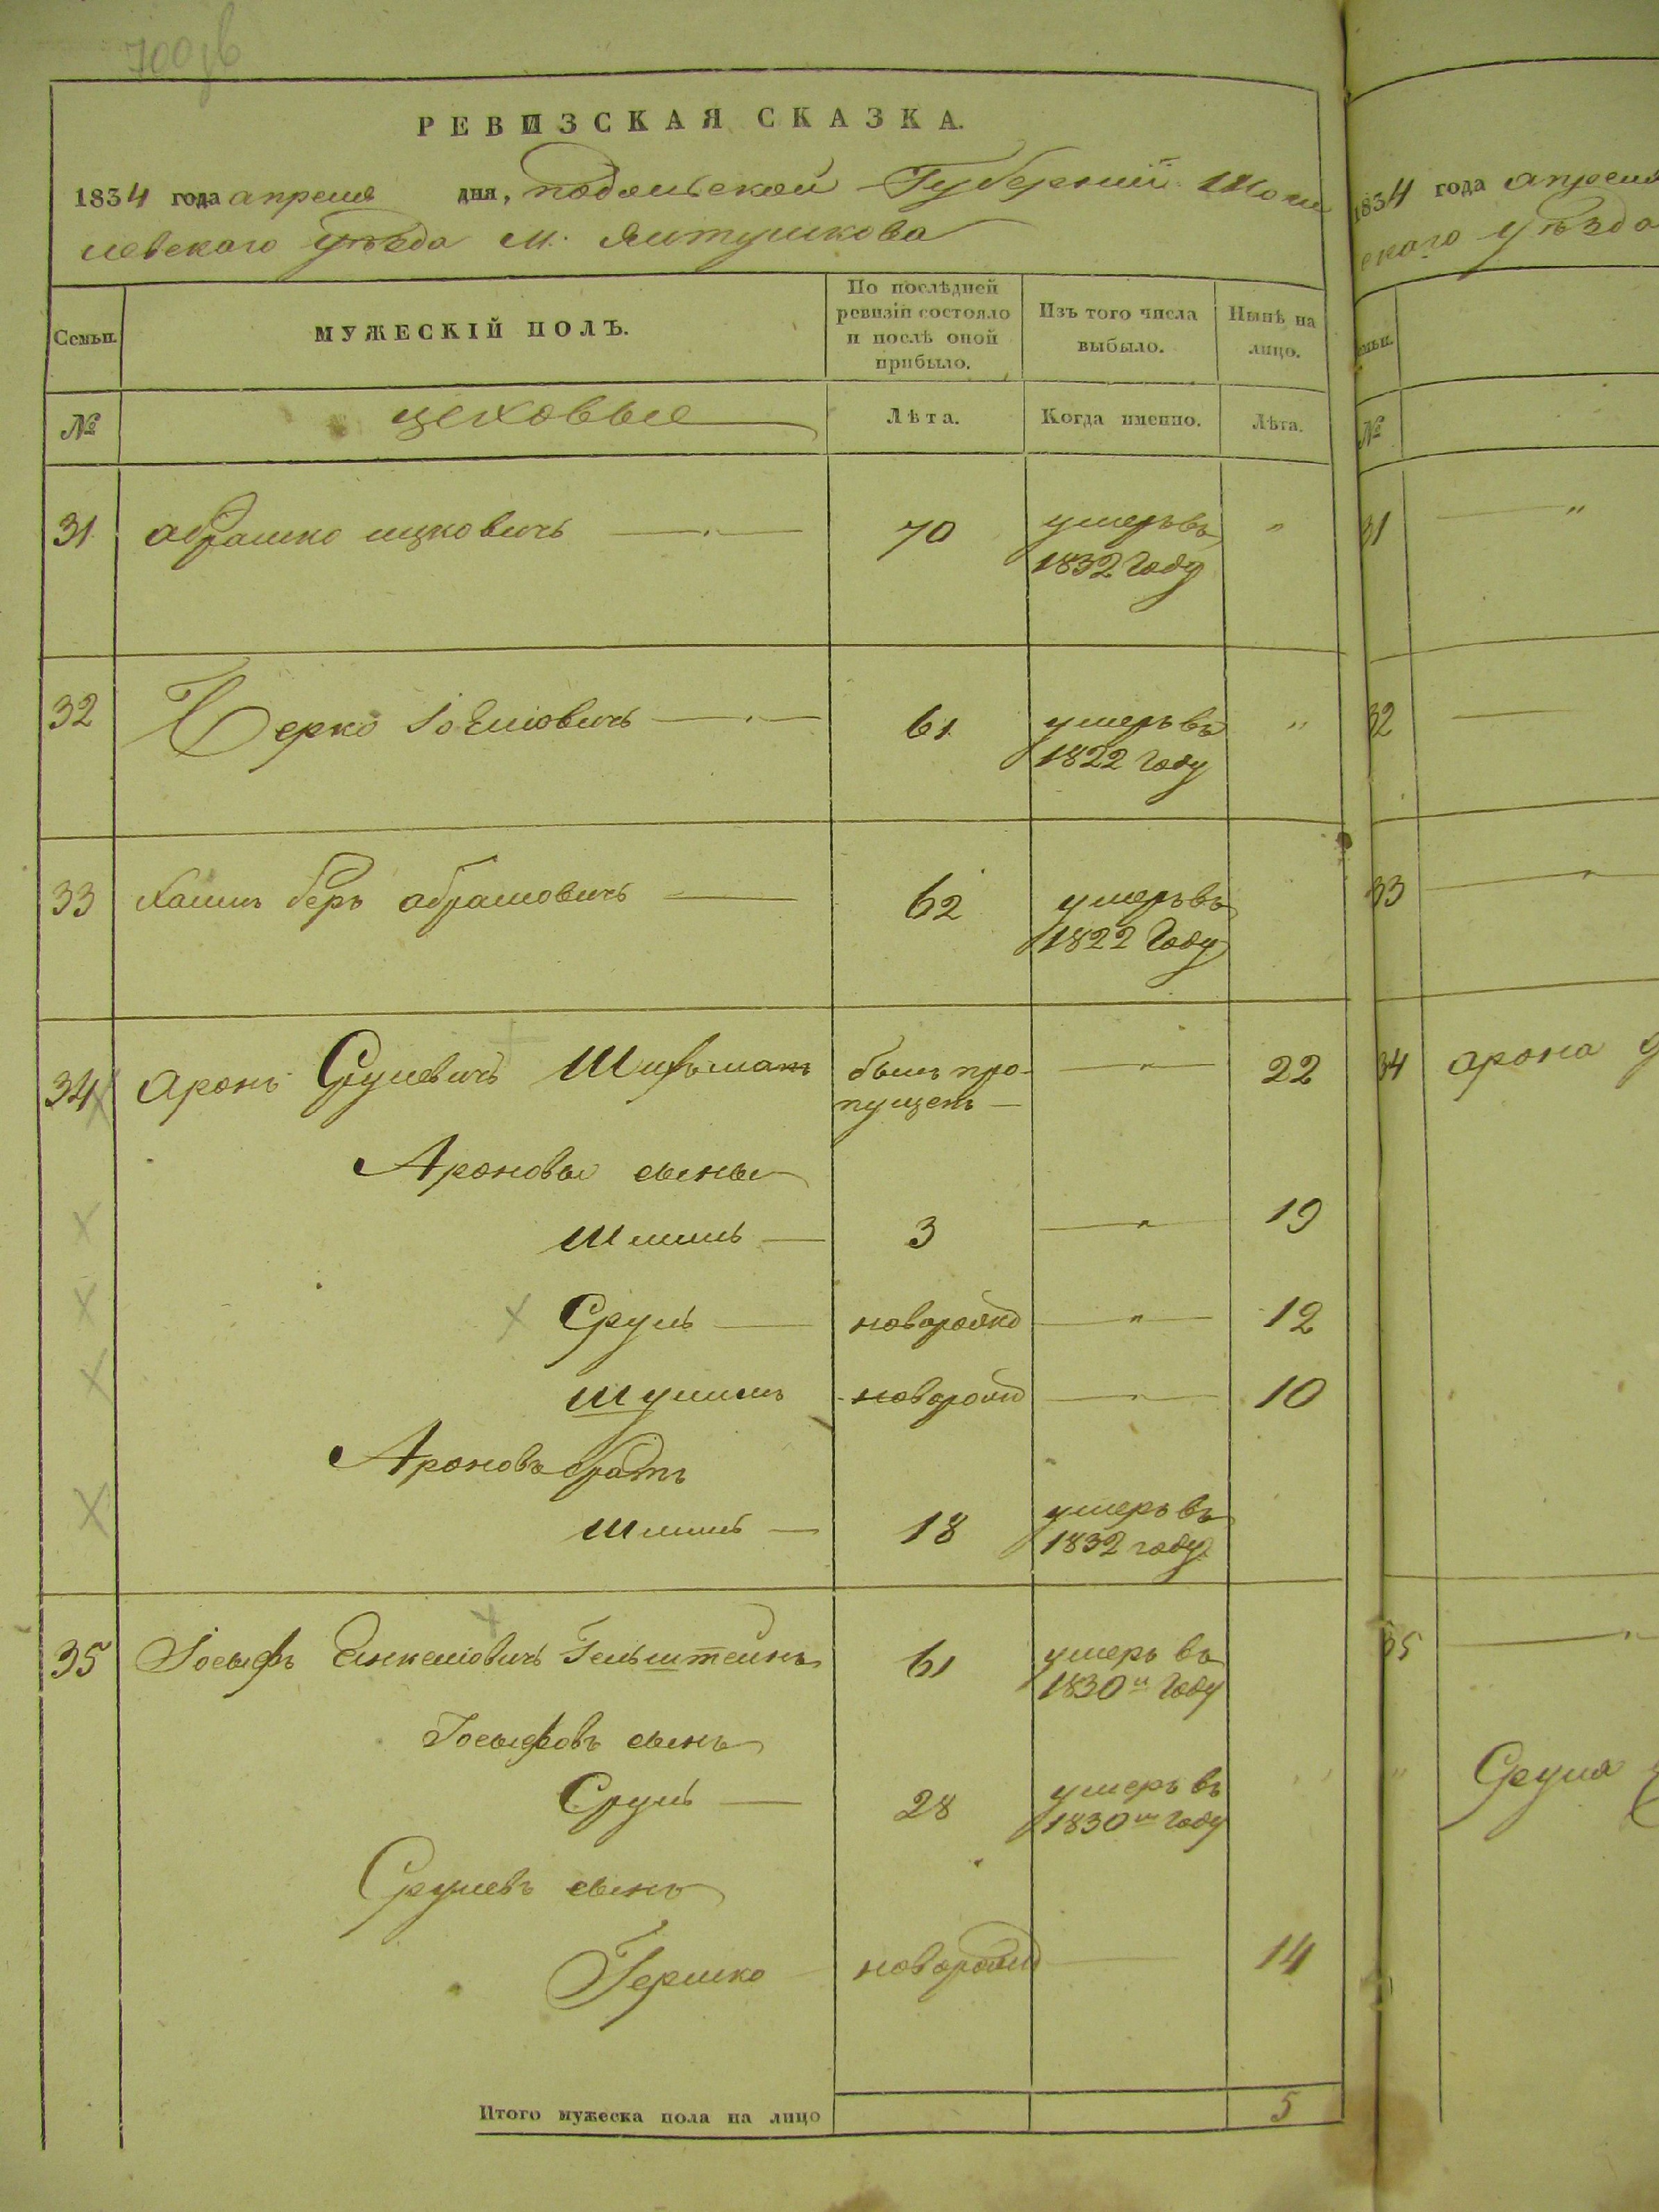 РЕВИЗСКАЯ СКАЗКА.
1834 года апреля дня, подольской Губернии Моги
левского уѣзда м. Ялтушкова
Семьи.
МУЖЕСКІЙ ПОЛЪ.
По послѣдней
ревизіи состояло
и послѣ оной
прибыло.
Изъ того числа
выбыло.
Нынѣ на
лицо.
№
цеховые
Лѣта.
Когда именно.
Лѣта.
31 абрашко ицковичь 70 умеръ въ "
1832 Году
32 Берко Іоселіовичь 61 умеръ въ "
1822 Году
33 Хаимъ беръ абрамовичь 62 умеръ въ
1822 Году
34 аронъ Срулевичъ Шифъманъ былъ про- " 22
пущенъ
Ароновы сыны
3 " 19
Сруль новорожд " 12
новорожд " 10
Ароновъ братъ
18 умеръ въ
1832 году
35 Іосифъ Енкелiовичь Гельштейнъ 61 умеръ въ
1830м Году
Іосифовъ сынъ
Сруль 28 умеръ въ
1830м Году
Срулевъ сынъ
Гершко новорожд 14
Итого мужеска пола на лицо 5
1834 года апреля
ского уѣзда
№
31 "
32
33 "
34 арона
35 "
" Сруля